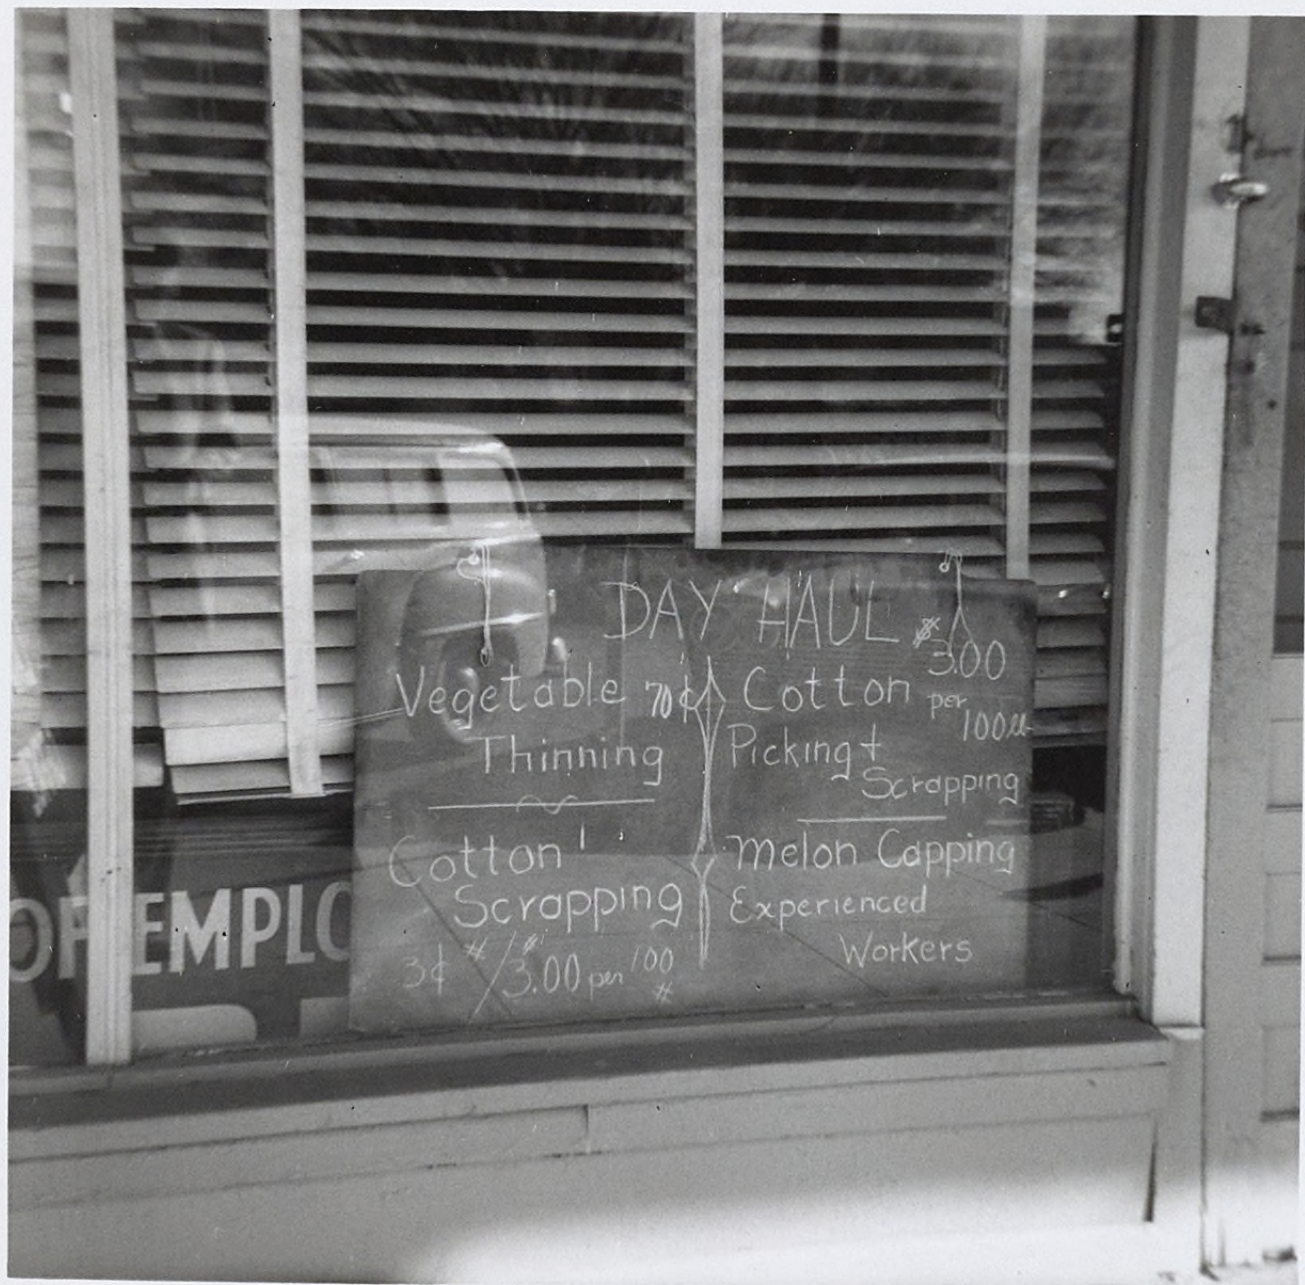 DAY HAUL
Vegetable 70¢
Thinning
Cotton
Scrapping
3¢ # / $3.00 per 100 #
Cotton $3.00
Picking + per 100 lb
Scrapping
Melon Capping
Experienced
Workers
OF EMPLO